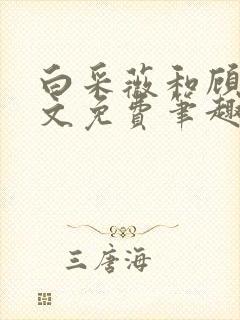 白采薇和顾
文免费笔趣
三唐海